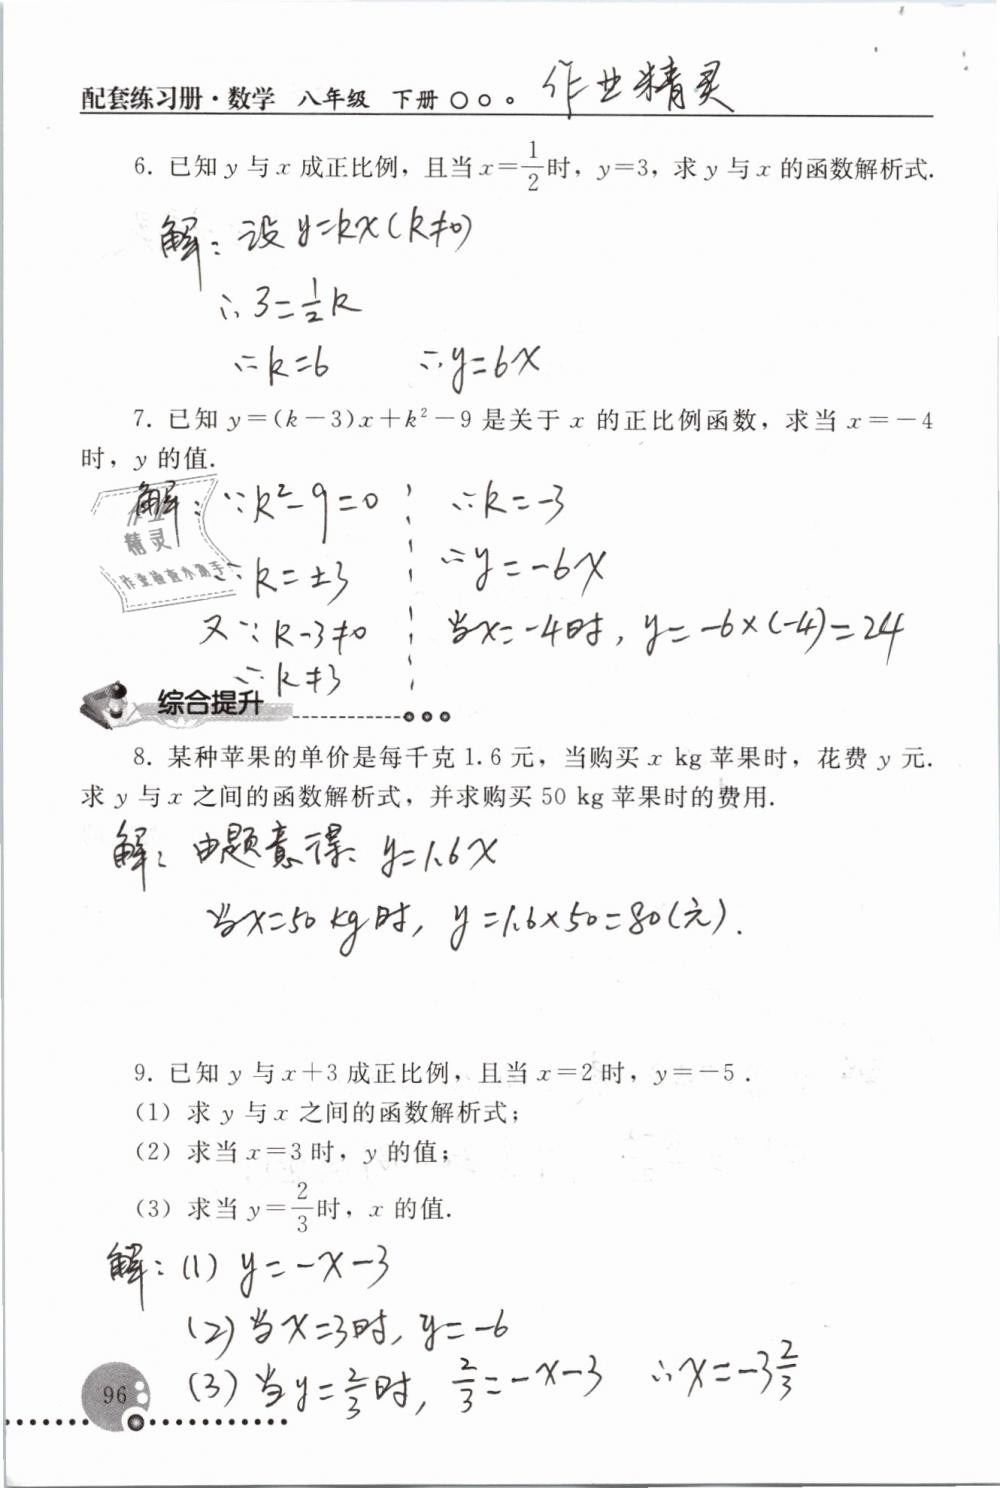 配套练习册·数学 八年级 下册 作业精灵
6. 已知 y 与 x 成正比例，且当 x=1/2时，y=3，求 y 与 x 的函数解析式.
解：设 y=kx(k≠0)
∴3=1/2k
∴k=6 ∴y=6x
7. 已知 y=(k-3)x+k²-9 是关于 x 的正比例函数，求当 x=-4
时，y 的值.
解：∵k²-9=0 ∴k=-3
∴k=±3 ∴y=-6x
又∵k-3≠0 当x=-4时，y=-6×(-4)=24
∴k≠3
精灵
作业检查小助手
综合提升
8. 某种苹果的单价是每千克 1.6 元，当购买 x kg 苹果时，花费 y 元.
求 y 与 x 之间的函数解析式，并求购买 50 kg 苹果时的费用.
解：由题意得 y=1.6x
当x=50kg时，y=1.6×50=80(元).
9. 已知 y 与 x+3 成正比例，且当 x=2 时，y=-5.
(1) 求 y 与 x 之间的函数解析式；
(2) 求当 x=3 时，y 的值；
(3) 求当 y=2/3时，x 的值.
解：(1) y=-x-3
(2)当x=3时，y=-6
(3)当y=2/3时，2/3=-x-3 ∴x=-3 2/3
96